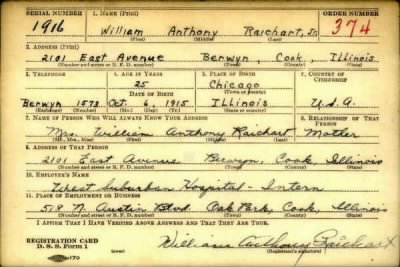 SERIAL NUMBER 1. NAME (Print) ORDER NUMBER
1916 William Anthony Raichart, Jr. 374
(First) (Middle) (Last)
2. ADDRESS (Print)
2101 East Avenue Berwyn, Cook, Illinois
(Number and street or R. F. D. number) (Town) (County) (State)
3. TELEPHONE 4. AGE IN YEARS 5. PLACE OF BIRTH 6. COUNTRY OF CITIZENSHIP
25 Chicago
(Town or county)
DATE OF BIRTH
Berwyn 1573 Oct. 6, 1915 Illinois U.S.A.
(Exchange) (Number) (Mo.) (Day) (Yr.) (State or country)
7. NAME OF PERSON WHO WILL ALWAYS KNOW YOUR ADDRESS 8. RELATIONSHIP OF THAT PERSON
Mrs. William Anthony Raichart Mother
(Mr., Mrs., Miss) (First) (Middle) (Last)
9. ADDRESS OF THAT PERSON
2101 East Avenue Berwyn, Cook, Illinois
(Number and street or R. F. D. number) (Town) (County) (State)
10. EMPLOYER'S NAME
West Suburban Hospital - Intern
11. PLACE OF EMPLOYMENT OR BUSINESS
518 N. Austin Blvd. Oak Park, Cook, Illinois
(Number and street or R. F. D. number) (Town) (County) (State)
I AFFIRM THAT I HAVE VERIFIED ABOVE ANSWERS AND THAT THEY ARE TRUE.
REGISTRATION CARD
D. S. S. Form 1 William Anthony Raichart
(Registrant's signature)